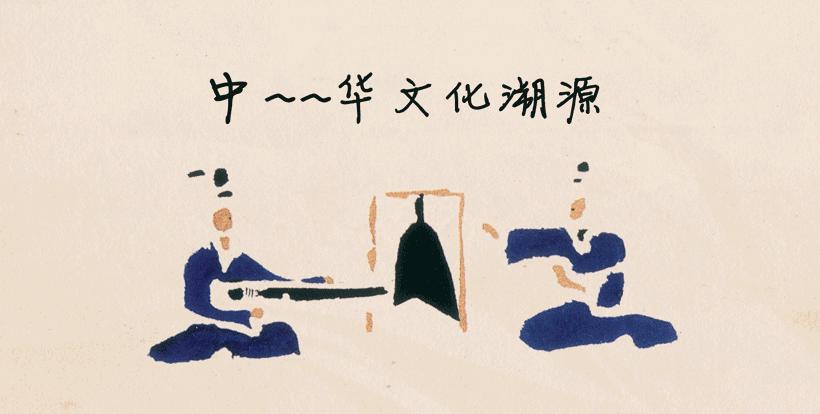 中~~华文化溯源